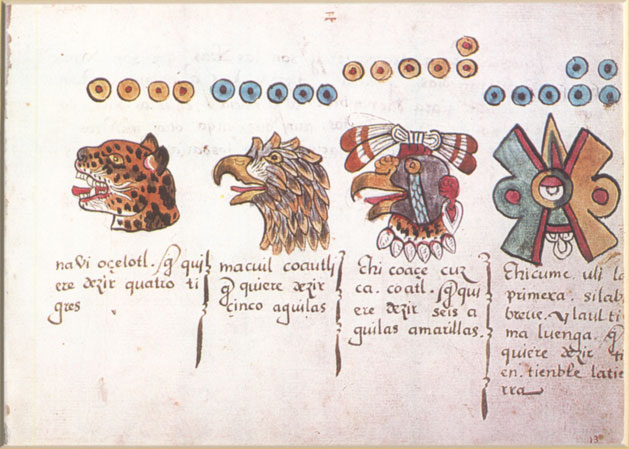 navi oçelotl. q̃ qui
ere dezir quatro ti
gres
macuil coautli
q̃ quiere dezir
çinco aguilas
chi coaçe cuz
ca. coatl. q̃ qui
ere dezir seis a
guilas amarillas.
chicume uli la
primera. silab
breue. y laulti
ma luenga. q̃
quiere dezir ti
en. tienble latie
rra
13